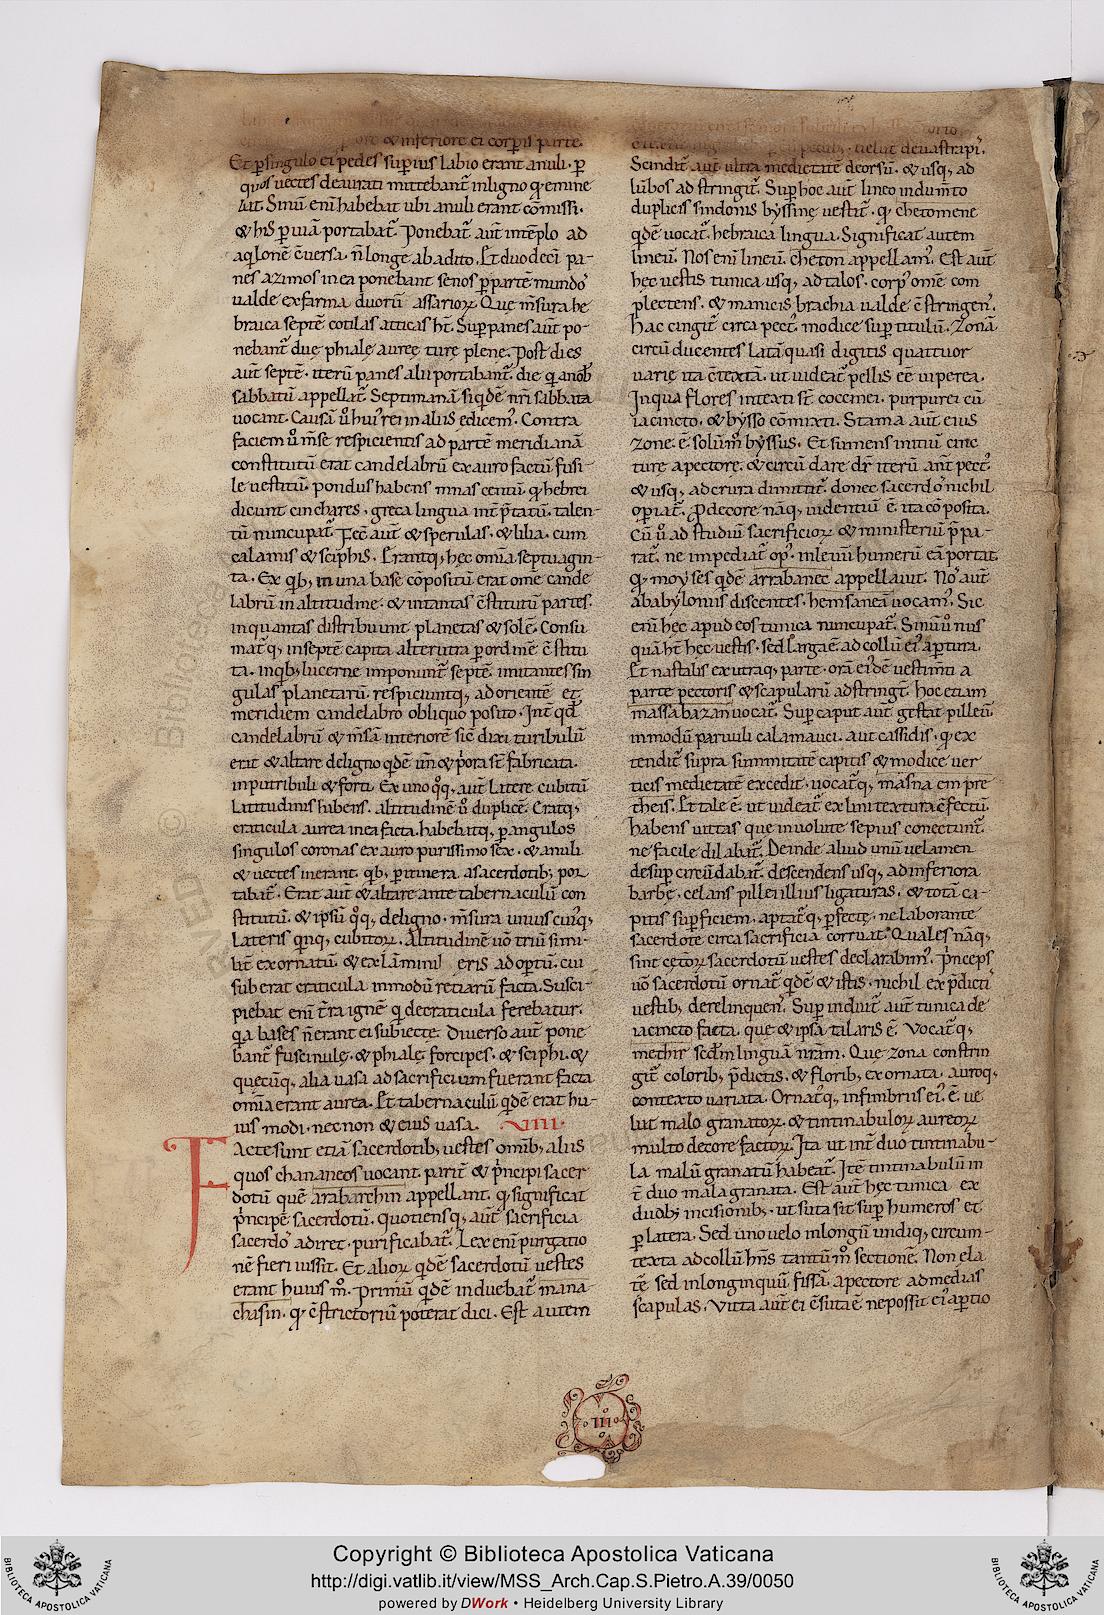 ore & inferiore ei corꝑis parte.
Et ꝑ singulo ei pedes suꝑius labio erant anuli. ꝑ
quos uectes deaurati mittebant᷑ inligno qꝫ emine
bat. Sinū enī habebat ubi anuli erant cōmissi.
& his ꝑ uiā portabat᷑. Ponebat᷑ aut̄ intēplo ad
aqlonē cuersa. n̄ longe ab adito. Et duodecī pa-
nes azimos in ea ponebant senos ꝑ partē mundos
ualde ex farina duorū assarioꝝ. Que m̄sura he
braica septē cotilas atticas ht̄. Suꝑ panes aut̄ po-
nebant᷑ due phiale auree ture plene. Post dies
aut̄ septē. iterū panes alii portabant᷑. die q̄ a nob̄
sabbatū appellat᷑. Septimanā siqdē nr̄i sabbata
uocant. Causā ū hui᷒ rei in aliis edicem᷒. Contra
faciem ū m̄se respicientis ad partē meridianā
constitutū erat candelabrū ex auro factū fusi-
le uestitū. pondus habens mnas centū. qꝫ hebrei
dicunt cinchares, greca lingua int̄ p̄tatū. talen-
tū nuncupat᷑. Fecē aut̄ & sperulas. & lilia. cum
calamis & sciphis. Erantqꝫ hęc omīa septuagin-
ta. Ex qbꝫ in una base cōpositū erat om̄e cande
labrū in altitudine. & in tantas c̄stitutū partes.
inquantas distribuunt planetas & solē. Consu
mat᷑qꝫ inseptē capita alterutra ꝑ ordinē c̄stitu
ta. inqbꝫ lucerne imponunt᷑ septē. imitantes sin
gulas planetarū. respiciuntqꝫ ad orientē et
meridiem candelabro obliquo posito. Int̄ qd̄
candelabrū & m̄sā interiorē sic̄ dixi turibulū
erat & altare deligno qdē un̄ & p̄ora sc̄ fabricata.
inputribuli & forti. Ex uno qͦqꝫ aut̄ latere cubitū
latitudinis habens. altitudinē ū duplicē. Eratqꝫ
craticula aurea in ea facta. habebatqꝫ ꝑ angulos
singulos coronas ex auro purissimo sex. & anuli
& uectes inerant. qbꝫ ꝑ itinera. a sacerdotibꝫ por
tabat᷑. Erat aut̄ & altare ante tabernaculū con
stitutū. & ipsū qͦqꝫ deligno. m̄sura unius cui᷒qꝫ
lateris qnqꝫ cubitoꝝ. Altitudinē uō triū simi-
lit̄ exornatū & ex lāminis eris adoꝑtū. cui
suberat craticula inmodū retiarū facta. Susci-
piebat enī t̄ra ignē q̄ decraticula ferebatur.
qa bases n̄ erant ei subiecte. Diuerso aut̄ pone
bant᷑ fuscinulę. & phialę. forcipes. & sciphi. &
quecūqꝫ alia uasa ad sacrificium fuerant facta
omīa erant aurea. Et tabernaculū qdē erat hu-
ius modi. necnon & eius uasa. VIIII.
Factę sunt etiā sacerdotibꝫ uestes omībꝫ aliis
quos chananeos uocant. pariт̄ & p̄ncipi sacer
dotū quē arabarchin appellant. qꝫ significat
p̄ncipē sacerdotū. quotiensqꝫ aut̄ sacrificia
sacerdos adiret. purificabat᷑. Lex enī purgatio
nē fieri iussit. Et alioꝝ qdē sacerdotū uestes
erant huius m̄. Primū qdē induebat᷑ mana
chasin. qꝫ c̄strictoriū poterat dici. Est autem
Scindit᷑ aut̄ ultra medietatē deorsū. & usqꝫ ad
lūbos adstringit᷑. Suꝑ hoc aut̄ lineo indum̄to
duplicis sindonis byssine uestit᷑. qꝫ chetomene
qdē uocat᷑. hebraica lingua. Significat autem
lineū. Nos enī lineū. cheton appellam᷒. Est aut̄
hęc uestis tunica usqꝫ ad talos. corp᷒ om̄e com
plectens. & manicis brachia ualde c̄stringens.
Hac cingit᷑ circa pect᷒ modice suꝑ titulū. Zonā
circū ducentes latā quasi digitis quattuor
uarie ita c̄textā. ut uideat᷑ pellis eē uiperea.
In qua flores intexti st̄ coccinei. purpurei cū
iacincto. & bysso cōmixti. Stama aut̄ eius
zone. ē solūm byssus. Et sumens initiū cinc
ture a pectore. & circū dare dr̄ iterū ant̄ pect᷒.
& usqꝫ ad crura dimittit᷑. donec sacerdos nichil
oꝑiat᷑. Pro decore nāqꝫ uidentiū ē. ita cōposita.
Cū ū ad studiū sacrificioꝝ & ministeriū p̄pa-
rat᷑. ne impediat᷑ op᷒. in leuū humerū eā portat.
qꝫ moyses qdē arrabanec appellauit. Nos aut̄
a babyloniis discentes. hemsaneā uocam᷒. Sic
enī hęc apud eos tunica nuncupat᷑. Sinū ū nus
quā ht̄ hęc uestis. sed largaē ad collū ei᷒ aꝑtura.
Et nastalis ex utraqꝫ parte. orā ei᷒dē uestim̄ti a
parte pectoris & scapularū adstringt᷑. hoc etiam
massabazan uocat᷑. Suꝑ caput aut̄ gestat pilleū
inmodū paruuli calamauci. aut cassidis. qꝫ ex
tendit᷑ supra summitatē capitis & modice uer
ticis medietatē excedit. uocat᷑qꝫ masna em pre
theis. Et tale ē. ut uideat᷑ ex lini textura c̄fectū.
habens uittas que inuolute sepius conectunt᷑.
ne facile dilabat᷑. Deinde aliud unū uelamen
desuꝑ circū dabat᷑. descendens usqꝫ ad inferiora
barbe. celans pillei illius ligaturas. & totā ca-
pitis suꝑficiem. aptat᷑qꝫ ꝑfecte. ne laborante
sacerdote circa sacrificia corruat. Quales nāqꝫ
sint cętoꝝ sacerdotū uestes declarabim᷒. Princeps
uō sacerdotū ornat᷑ qdē & istis. nichil ex p̄dictis
uestibꝫ derelinquens. Suꝑ induit᷑ aut̄ tunica de
iacincto facta. que & ipsa talaris ē. Vocat᷑qꝫ
methir scdm̄ linguā nr̄am. Que zona constrin
git᷑ coloribꝫ p̄dictis. & floribꝫ exornata. auroqꝫ
contexto uariata. Ornat᷑qꝫ infimbriis ei᷒. ē. ue
lut malo granatoꝝ. & tintinabuloꝝ aureoꝝ
multo decore factoꝝ. Ita ut int̄ duo tintinabu-
la malū granatū habeat᷑. Itē tintinabulū in
t̄ duo mala granata. Est aut̄ hęc tunica ex
duobꝫ incisionibꝫ. ut suta sit suꝑ humeros et
ꝑ latera. Sed uno uelo inlongū undiqꝫ circum-
texta ad collū hn̄s tantūm sectionē. Non ela
tē sed in longinquū fissā a pectore ad medias
scapulas. Vitta aut̄ ei c̄suta ē ne possit ei᷒ aꝑtio
III
Copyright © Biblioteca Apostolica Vaticana
http://digi.vatlib.it/view/MSS_Arch.Cap.S.Pietro.A.39/0050
powered by DWork • Heidelberg University Library
BIBLIOTECA APOSTOLICA VATICANA
BIBLIOTECA APOSTOLICA VATICANA